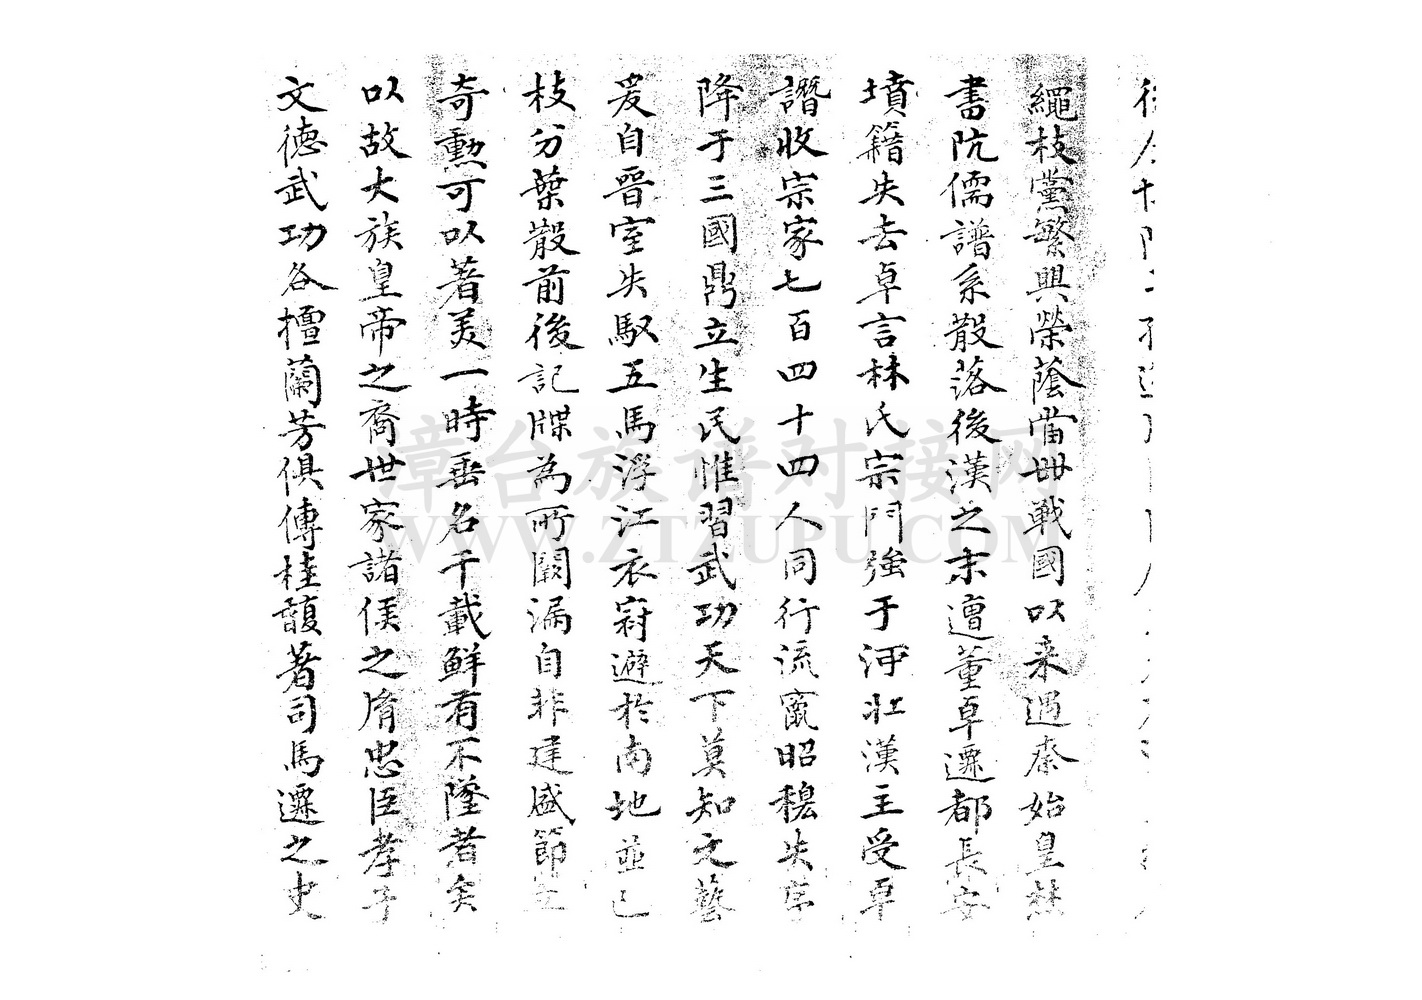 繩枝黨繁興榮蔭當世戰國以来遇秦始皇焚
書阬儒譜系散落後漢之末遭董卓遷都長安
墳籍失去卓言林氏宗門強于河北漢主受卓
譖收宗家七百四十四人同行流竄昭穆失序
降于三國鼎立生民惟習武功天下莫知文藝
爰自晉室失馭五馬浮江衣冠避於南地並已
枝分葉散前後記牒為所闕漏自非建盛節立
奇勳可以著美一時垂名千載鮮有不墜者矣
以故大族皇帝之裔世家諸侯之胤忠臣孝子
文德武功各擅蘭芳俱傳桂馥著司馬遷之史
漳台族谱对接网
WWW.ZTZUPU.COM